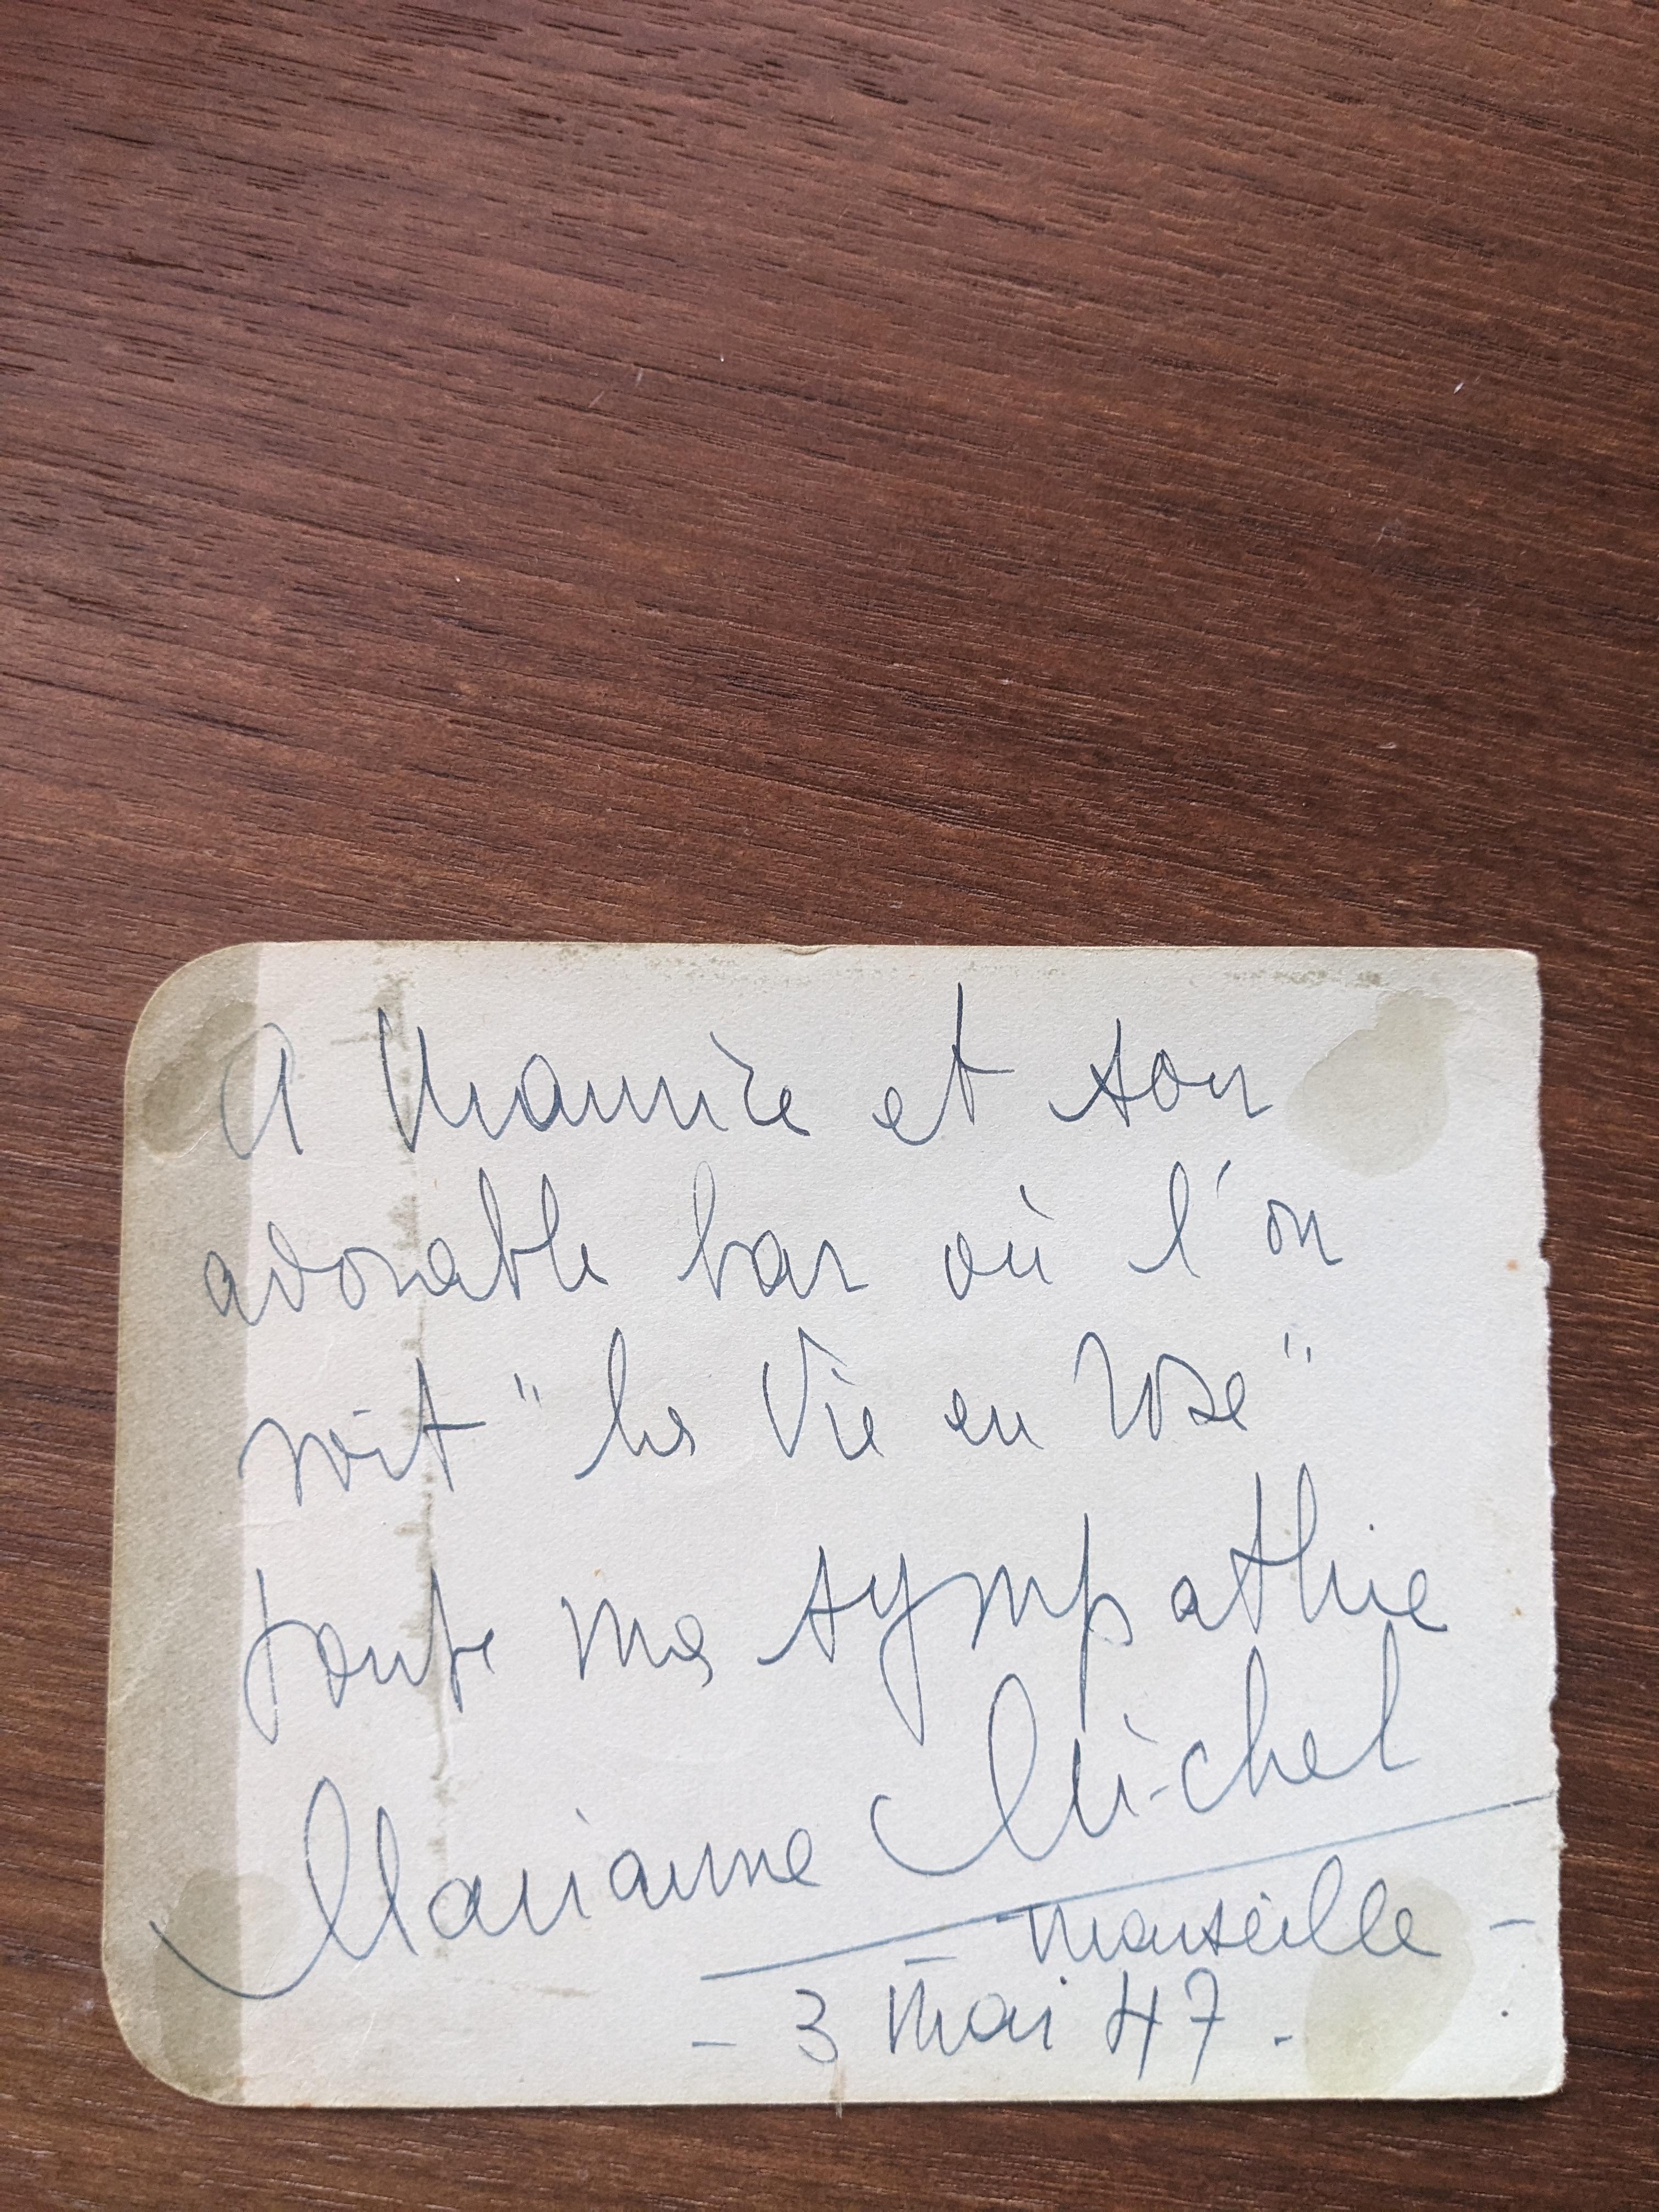 A Maurice et son
adorable bar où l'on
voit "la Vie en Rose"
toute ma sympathie
Marianne Michel
- Marseille -
- 3 Mai 47.